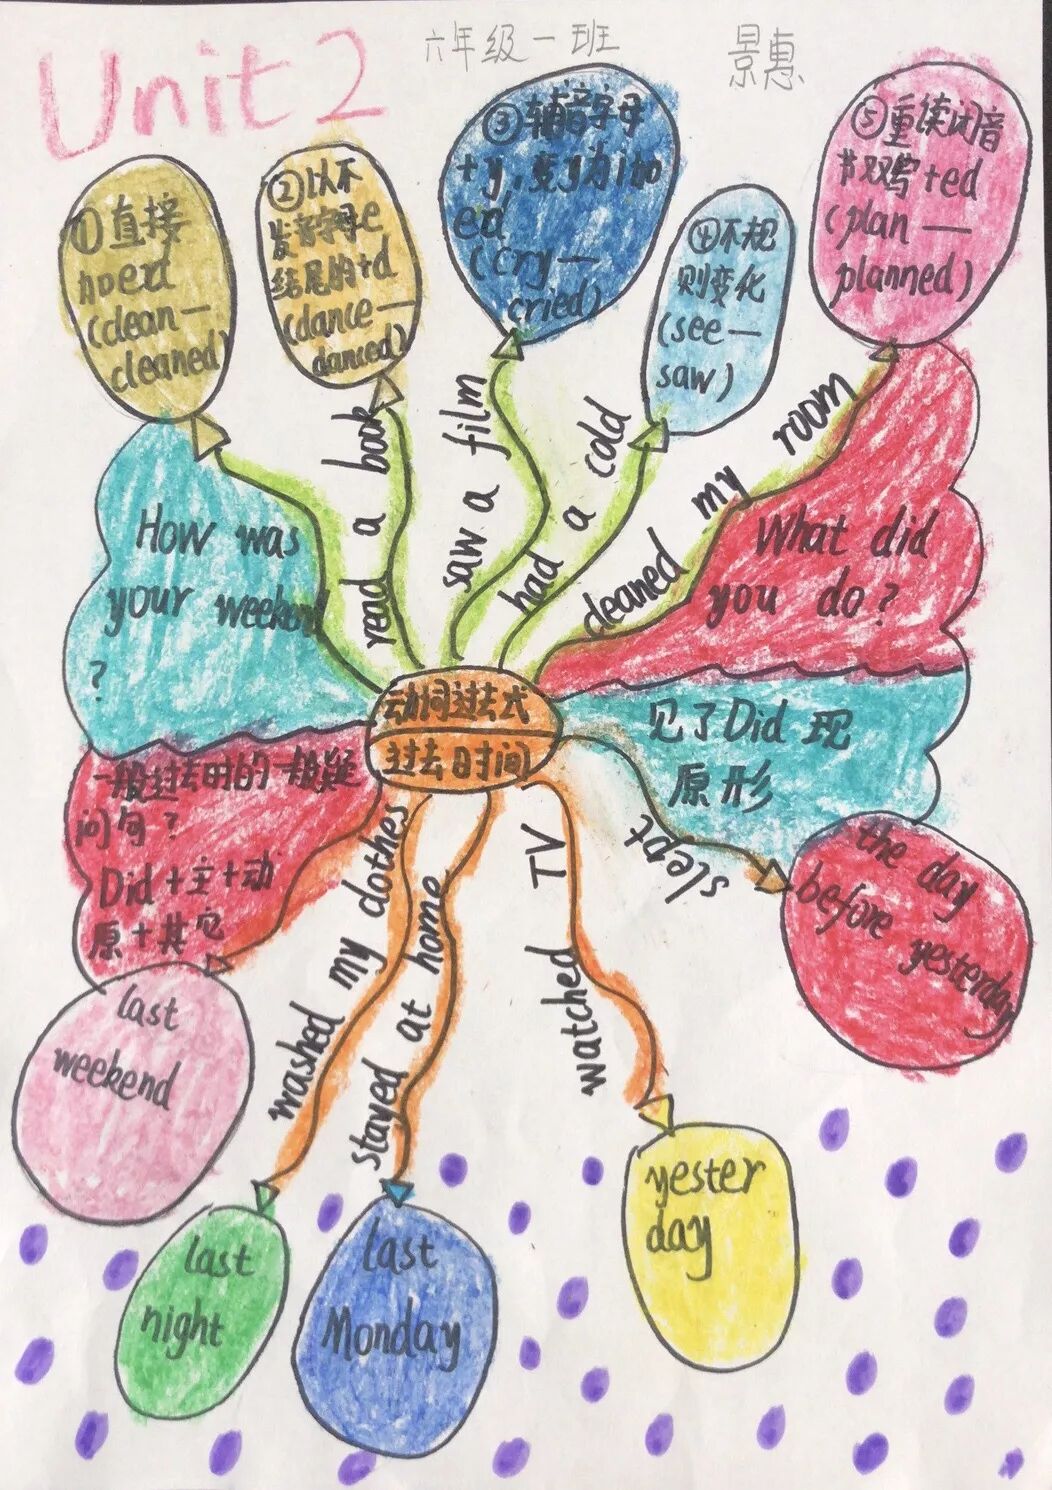 Unit2
六年级一班
景惠
①直接
加ed
(clean—
cleaned)
②以不
发音字母e
结尾的+d
(dance—
danced)
③辅音字母
+y,变y为i加
ed
(cry—
cried)
④不规
则变化
(see—
saw)
⑤重读闭音
节双写+ed
(plan—
planned)
read a book
saw a film
had a cold
cleaned my room
How was
your weekend
?
What did
you do?
动词过去式
过去时间
见了Did现
原形
一般过去时的一般疑
问句?
Did+主+动
原+其它
washed my clothes
stayed at home
watched TV
slept
the day
before yesterday
last
weekend
last
night
last
Monday
yester
day